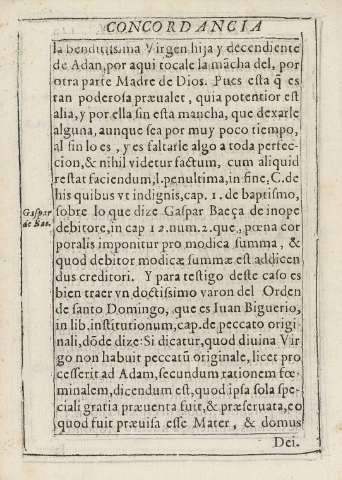 CONCORDANCIA
la benditissima Virgen hija y decendiente
de Adan, por aqui tocale la mãcha del, por
otra parte Madre de Dios. Pues esta q̃ es
tan poderosa præualet, quia potentior est
alia, y por ella sin esta mancha, que dexarle
alguna, aunque sea por muy poco tiempo,
al fin lo es, y es faltarle algo a toda perfec-
cion, & nihil videtur factum, cum aliquid
restat faciendum, l. penultima, in fine, C. de
his quibus vt indignis, cap. 1. de baptismo,
sobre lo que dize Gaspar Baeça de inope
Gaspar
de Bae.
debitore, in cap 12. num. 2. que, pœna cor
poralis imponitur pro modica summa, &
quod debitor modicæ summæ est addicen
dus creditori. Y para testigo deste caso es
bien traer vn doctissimo varon del Orden
de santo Domingo, que es Iuan Biguerio,
in lib. institutionum, cap. de peccato origi
nali, dõde dize: Si dicatur, quod diuina Vir
go non habuit peccatũ originale, licet pro
cesserit ad Adam, secundum rationem fœ-
minalem, dicendum est, quod ipsa sola spe-
ciali gratia præuenta fuit, & præseruata, eo
quod fuit præuisa esse Mater, & domus
Dei.